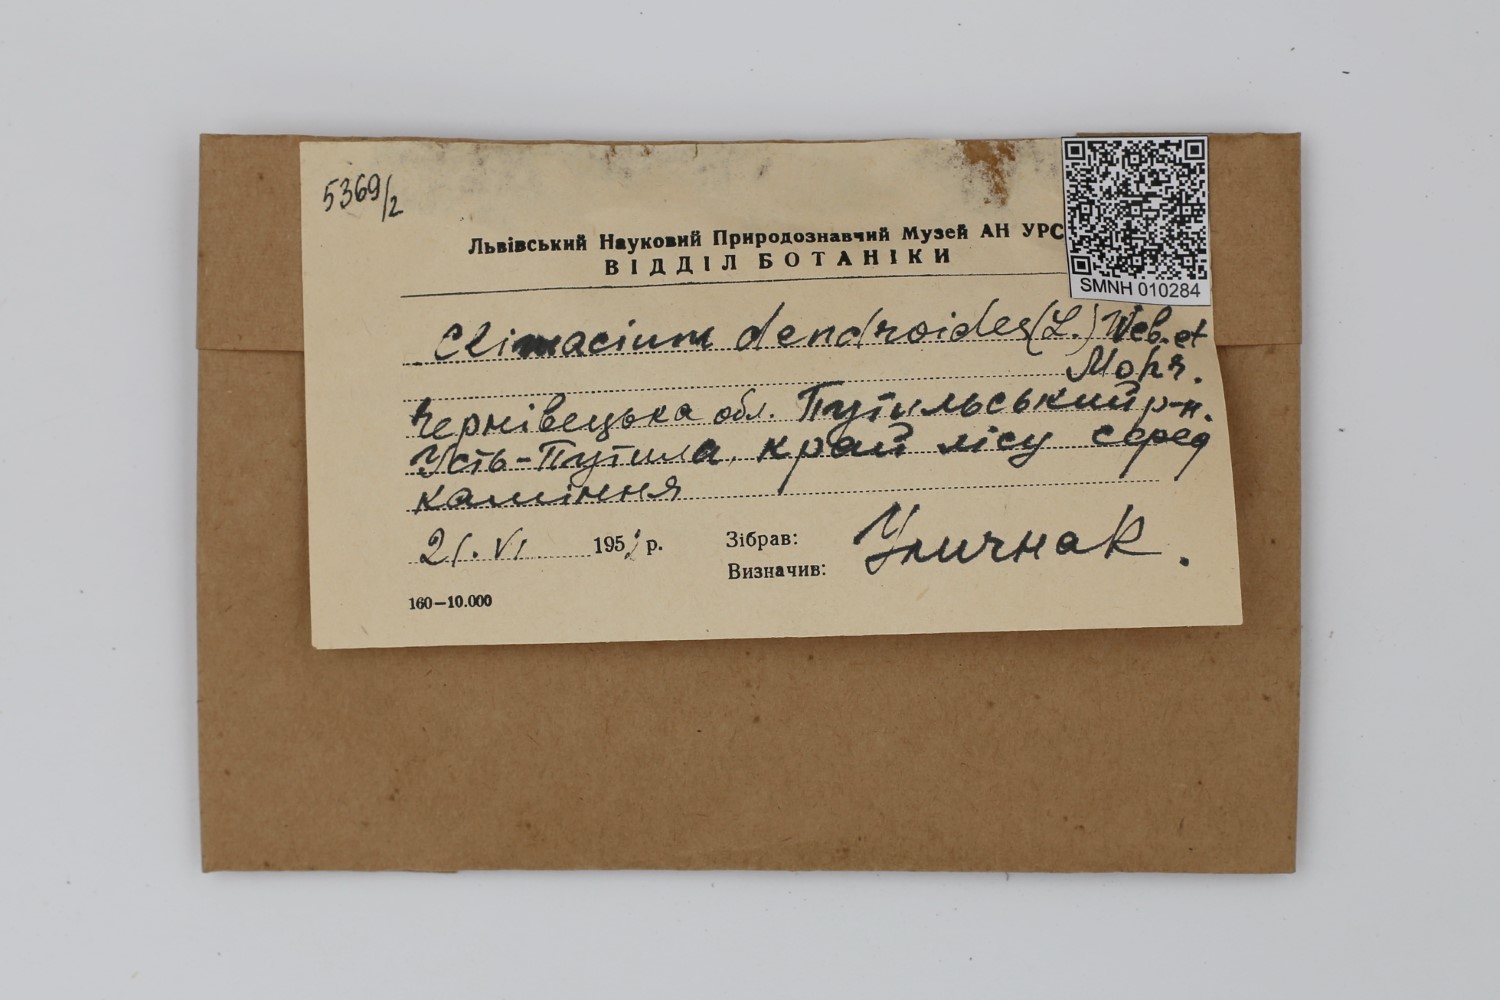 5369/2
Львівський Науковий Природознавчий Музей АН УРС
ВІДДІЛ БОТАНІКИ
SMNH 010284
Climacium dendroides (L.) Web. et
Mohr.
Чернівецька обл. Путильський р-н.
Усть-Путила, край лісу серед
каміння
21.VI 1952 р.
Зібрав:
Визначив:
Уличнак.
160—10.000